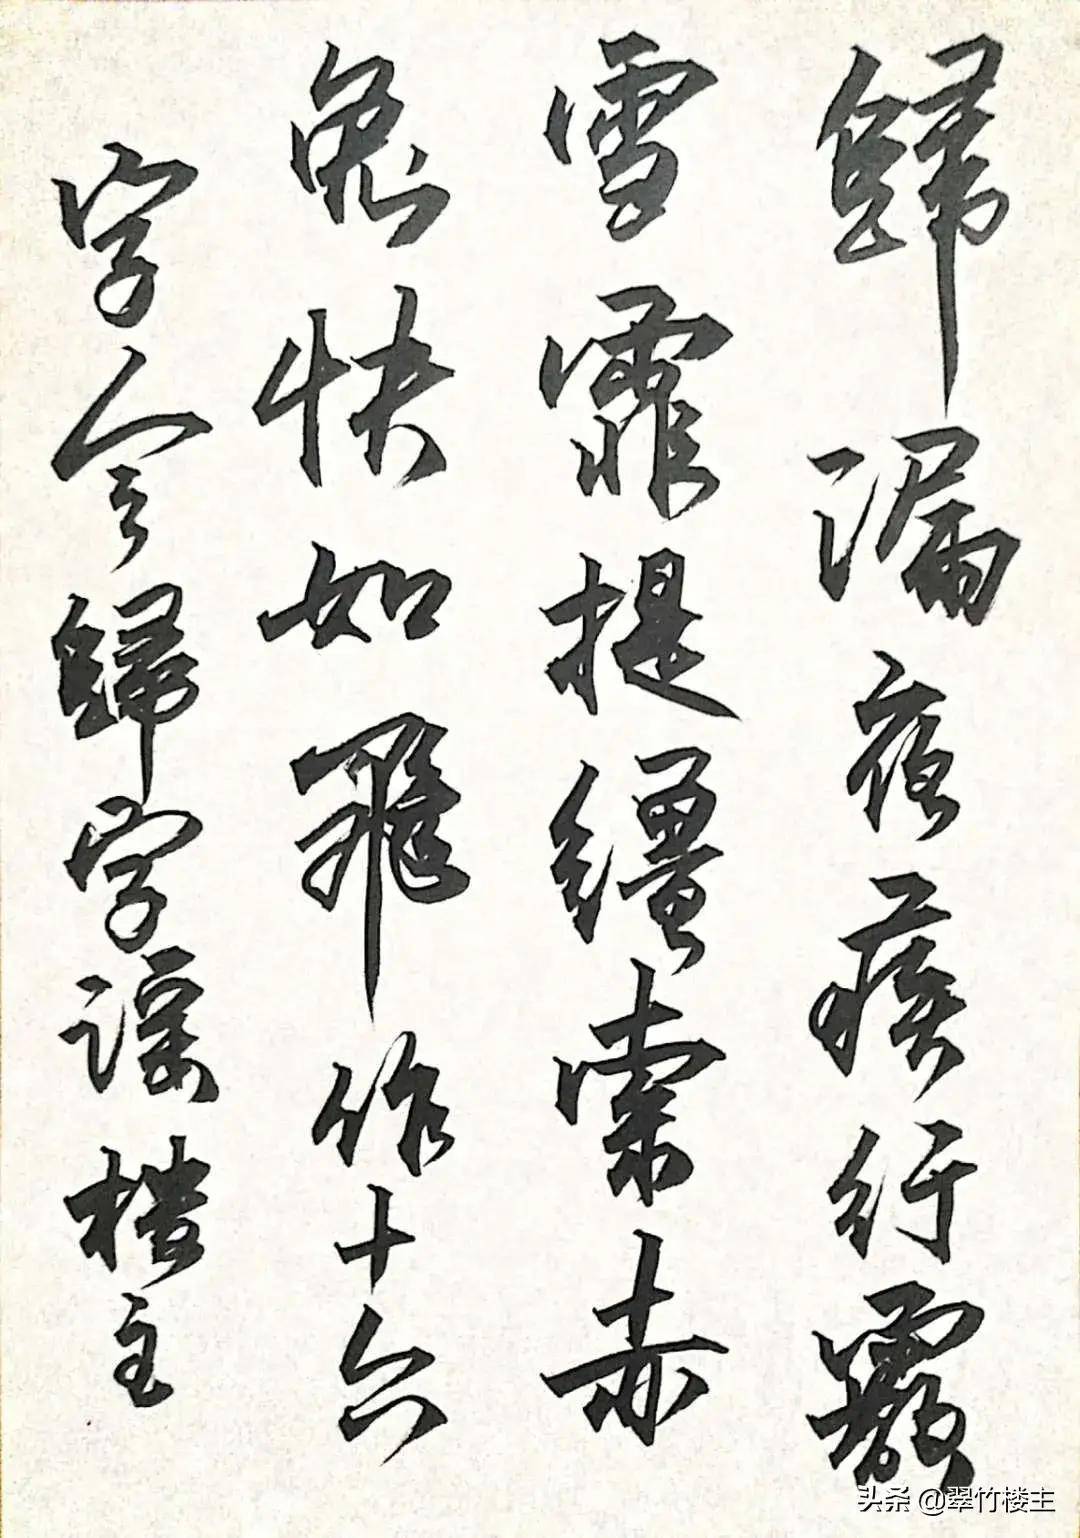 歸漏夜疾行霰
雪霏提繮索赤
兔快如飛作十六
字令歸字謠樓主
头条 @翠竹楼主